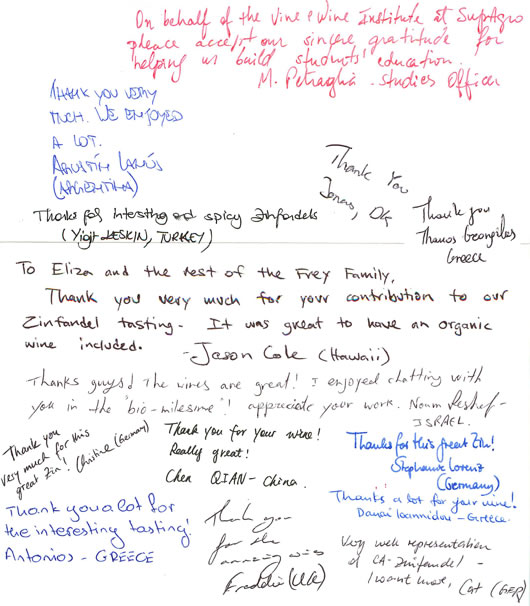 On behalf of the Vine & Wine Institute at SupAgro
please accept our sincere gratitude for
helping us build students' education.
M. Petraglia. Studies Officer
THANK YOU VERY
MUCH. WE ENJOYED
A LOT.
AGUSTÍN LANÚS
(ARGENTINA)
Thank You
Jonas,
Thanks for intersting and spicy zinfandels
(Yigit KESKIN, TURKEY)
Thank you
Thanos Georgilas
Greece
To Eliza and the rest of the Frey Family,
Thank you very much for your contribution to our
Zinfandel tasting. It was great to have an organic
wine included.
- Jason Cole (Hawaii)
Thanks guys! The wines are great! I enjoyed chatting with
you in the "bio-milesime"! appreciate your work. Noam Reshef -
ISRAEL.
Thank you
very much for this
great Zin! Christine (Germany)
Thank you for your wine!
Really great!
Chen QIAN - China
Thanks for this great Zin!
Stephanie Lorenz
(Germany)
Thank you a lot for
the interesting tasting!
Antonios - GREECE
Thank you
for the
amazing wine
Freddie (UK)
Thanks a lot for your wine!
Danai Ioannidou - Greece.
Very well representation
of CA-Zinfandel -
I want more, Cat (GER)